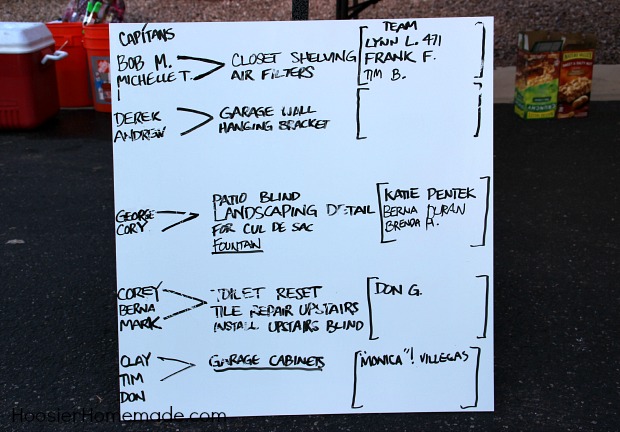 CAPITANS
TEAM
BOB M.
MICHELLE T.
CLOSET SHELVING
AIR FILTERS
LYNN L. 471
FRANK F.
TIM B.
DEREK
ANDREW
GARAGE WALL
HANGING BRACKET
GEORGE
CORY
PATIO BLIND
LANDSCAPING DETAIL
FOR CUL DE SAC
FOUNTAIN
KATIE PENTEK
BERNA DURAN
BRENDA A.
COREY
BERNA
MARK
TOILET RESET
TILE REPAIR UPSTAIRS
INSTALL UPSTAIRS BLIND
DON G.
CLAY
TIM
DON
GARAGE CABINETS
"MONICA"! VILLEGAS
HoosierHomemade.com